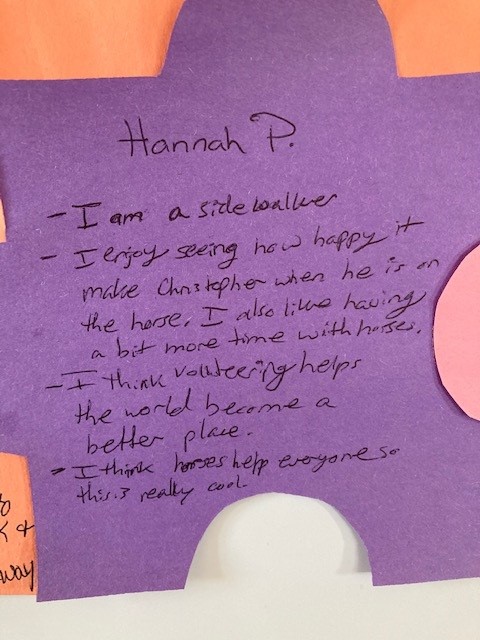 Hannah P.
- I am a sidewalker
- I enjoy seeing how happy it
make Christopher when he is on
the horse. I also like having
a bit more time with horses.
- I think volnteering helps
the world become a
better place.
- I think horses help everyone so
this is really cool.
+
way